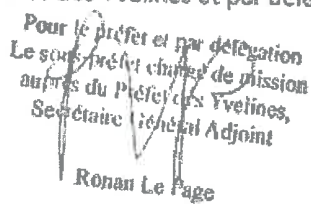 Pour le préfet et par délégation
Le sous-préfet chargé de mission
auprès du Préfet des Yvelines,
Secrétaire Général Adjoint
Ronan Le Page